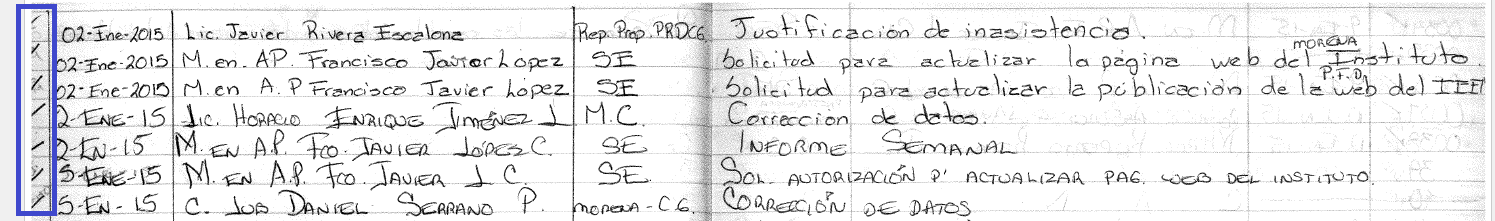 02-Ene-2015 Lic. Javier Rivera Escalona Rep. Prop. PRDCG Justificación de inasistencia.
02-Ene-2015 M. en. AP. Francisco Javier López SE Solicitud para actualizar la página web del MORENA Instituto.
02-Ene-2015 M. en A. P Francisco Javier López SE Solicitud para actualizar la publicación de la P.F.D. web del IEEM
2-ENE-15 Lic. HORACIO ENRIQUE JIMÉNEZ J M.C. Correccion de datos.
2-EN-15 M. EN A.P. FCO. JAVIER LÓPEZ C. SE INFORME SEMANAL
5-ENE-15 M. EN A.P. FCO. JAVIER L C. SE SOL. AUTORIZACIÓN P' ACTUALIZAR PAG. WEB DEL INSTITUTO.
5-EN-15 C. LUIS DANIEL SERRANO P. MORENA-CG. CORRECCIÓN DE DATOS